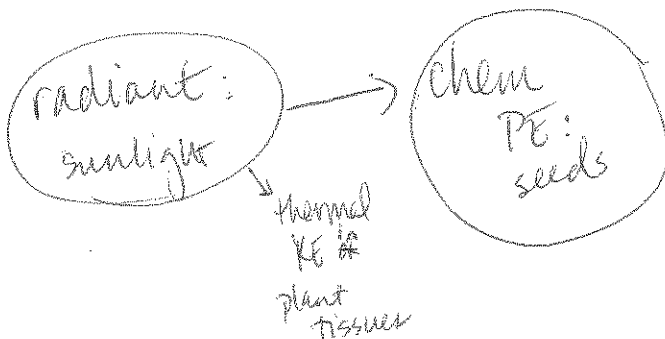 radiant:
sunlight
chem
PE:
seeds
thermal
KE in
plant
tissues